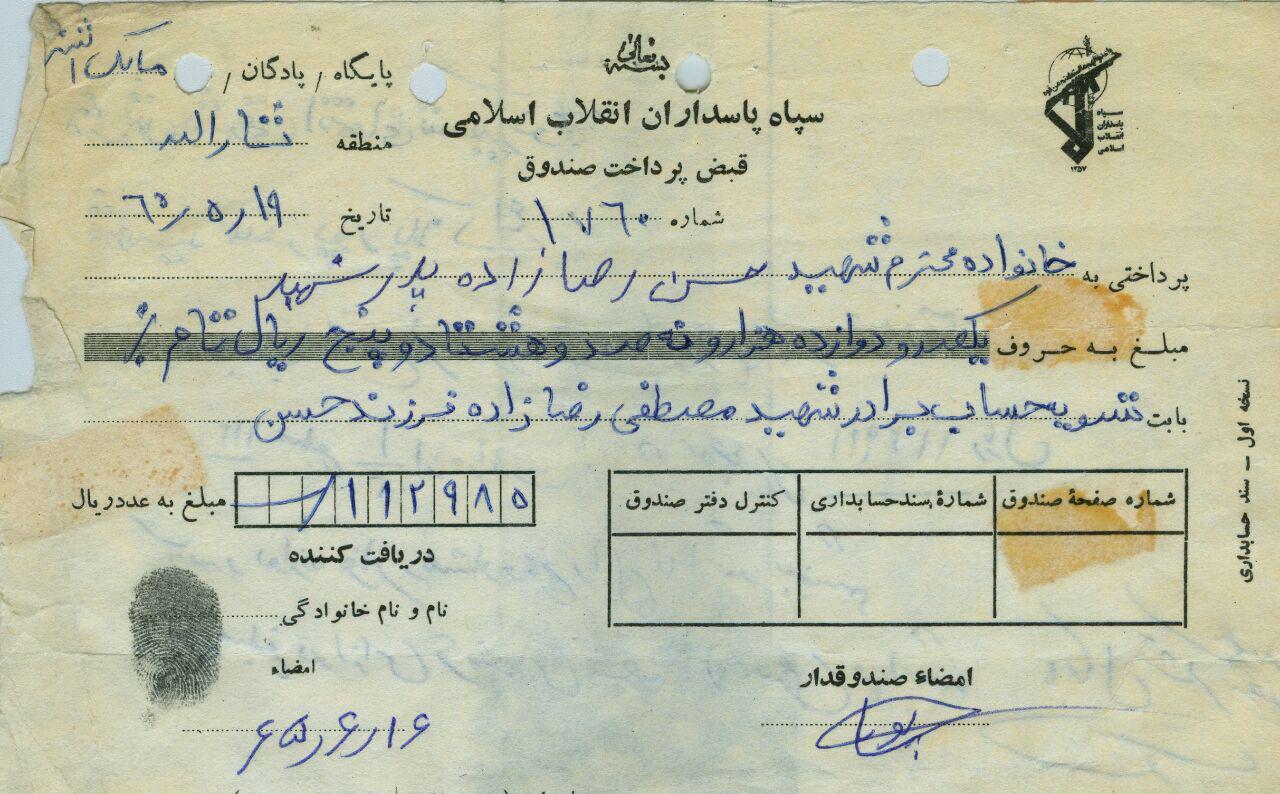 بسمه تعالی
سپاه پاسداران انقلاب اسلامی
قبض پرداخت صندوق
شماره ۱۷۶۰
سپاه
پاسداران
انقلاب
اسلامی
۱۳۵۷
پایگاه / پادگان /
منطقه ثارالله
تاریخ ۱۹ر۵ر۶۵
پرداختی به خانواده محترم شهید حسن رضا زاده پدر شهید
مبلغ به حروف یکصدو دوازده هزارو نه صد و هشتاد و پنج ریال تمام
بابت تسویه حساب برادر شهید مصطفی رضا زاده فرزند حسن
شماره صفحهٔ صندوق شمارهٔ سندحسابداری کنترل دفتر صندوق
۱۱۲۹۸۵ مبلغ به عدد ریال
دریافت کننده
نام و نام خانوادگی
امضاء
۱۶ر۶ر۶۵
امضاء صندوقدار
نسخه اول ــ سند حسابداری